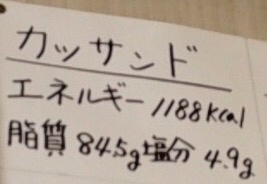 カツサンド
エネルギー 1188kcal
脂質 84.5g 塩分 4.9g